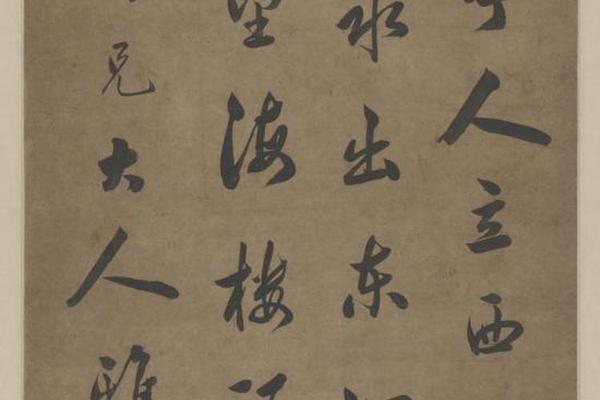 人立西
水出东
望海楼
兄大人雅